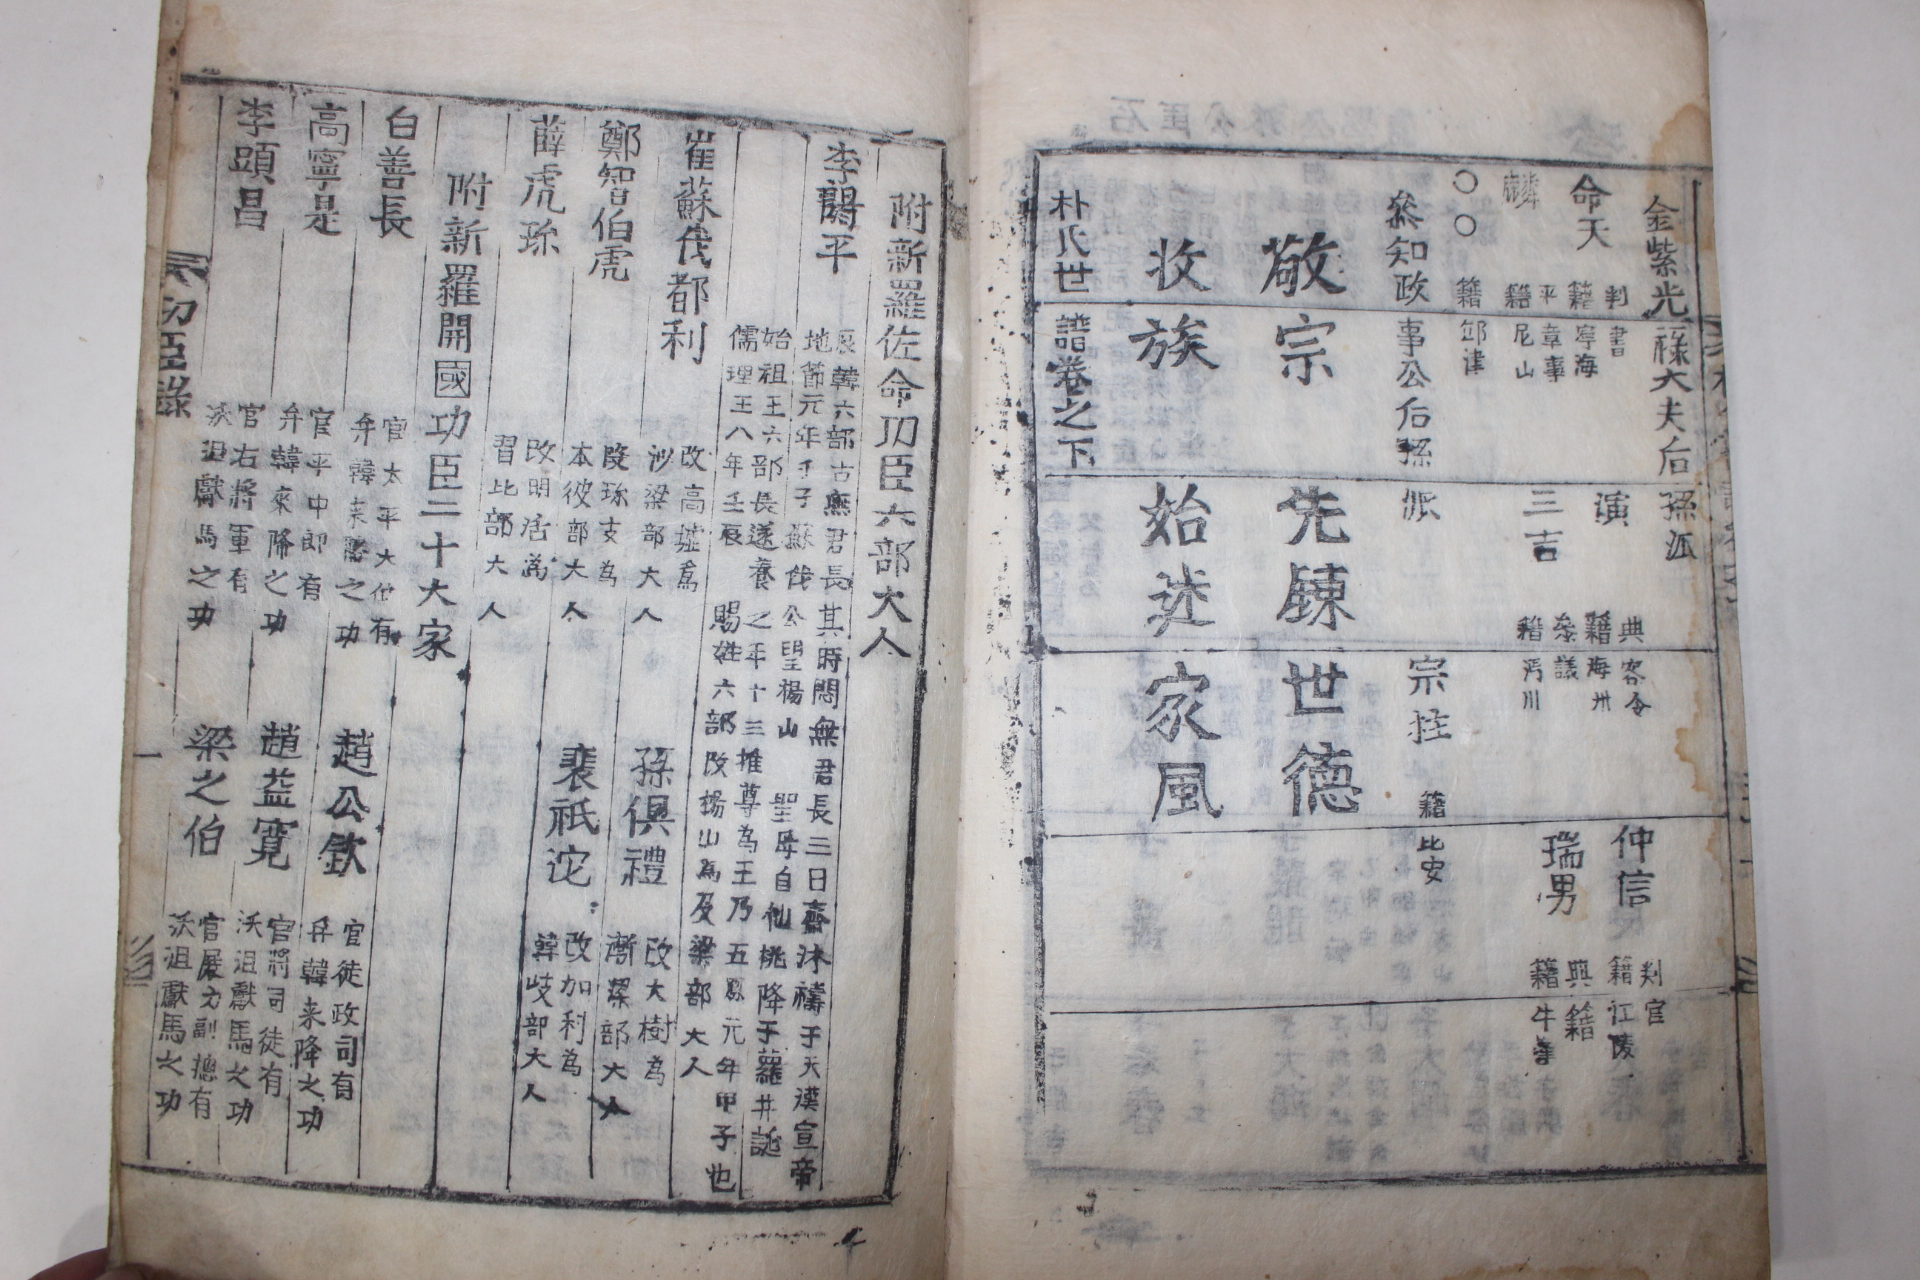 金紫光祿大夫后孫派
命天 判書 籍寧海
演 典客令 籍海州
仲信 判官 籍江陵
麟 平章事 籍尼山
三吉 叅議 籍沔川
瑞男 典籍 籍牛峯
○○ 籍邱津
叅知政事公后孫派 宗柱 籍比安
敬宗先陳世德
收族始述家風
朴氏世譜卷之下
附新羅佐命功臣六部大人
李謁平
辰韓六部古無君長其時悶無君長三日齋沐禱于天漢宣帝
地節元年壬子蘇伐公聖楊山 聖母自仙桃降于蘿井誕
始祖王六部長遂養之年十三推尊為王乃五鳳元年甲子也
儒理王八年壬辰 賜姓六部改楊山為及梁部大人
崔蘇伐都利 改高墟為沙梁部大人
孫俱禮 改大樹為漸梁部大人
鄭智伯虎 改珍支為本彼部大人
裴祇沱 改加利為韓岐部大人
薛虎珍 改明活為習比部大人
附新羅開國功臣三十大家
白善長 官太平大仕有弁韓来降之功
趙公欽 官徒政司有弁韓来降之功
高寧是 官平中郎有弁韓來降之功
趙益寬 官將司徒有沃沮獻馬之功
李頭昌 官右將軍有沃沮獻馬之功
梁之伯 官展力副摠有沃沮獻馬之功
功臣錄
一